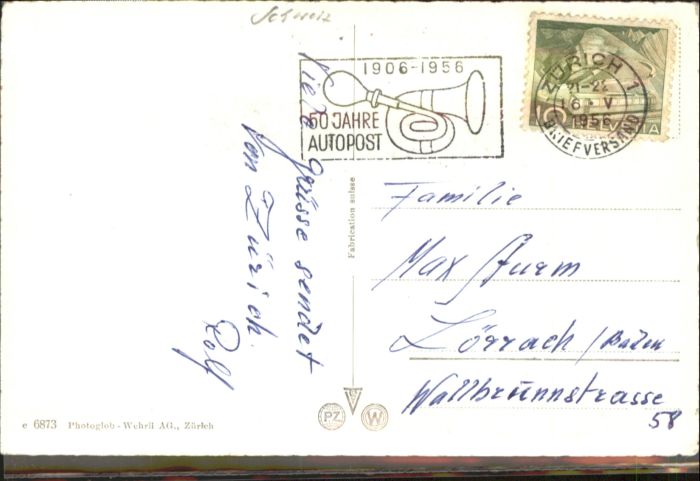 Schweiz
1906-1956
50 JAHRE
AUTOPOST
ZÜRICH 1
21-22
16 V
1956
BRIEFVERSAND
Viele Grüsse sendet
von Zürich.
Rolf
Fabrication suisse
Familie
Max Sturm
Lörrach/Baden
Wallbrunnstrasse
58
e 6873 Photoglob-Wehrli AG., Zürich
PZ
W